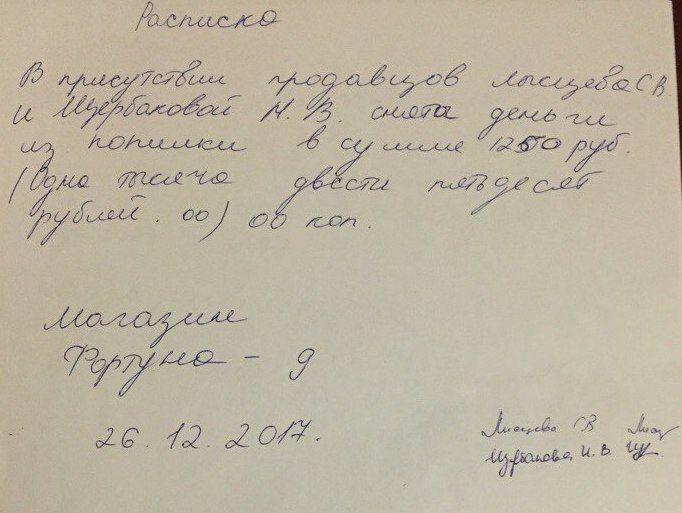 Расписка
В присутствии продавцов Лысцева С В.
и Щербаковой Н. В. снята деньги
из копилки в сумме 1250 руб.
(Одна тысяча двести пятьдесят
рублей. 00) 00 коп.
Магазин
Фортуна - 9
26. 12. 2017.
С В
Щербакова Н. В.